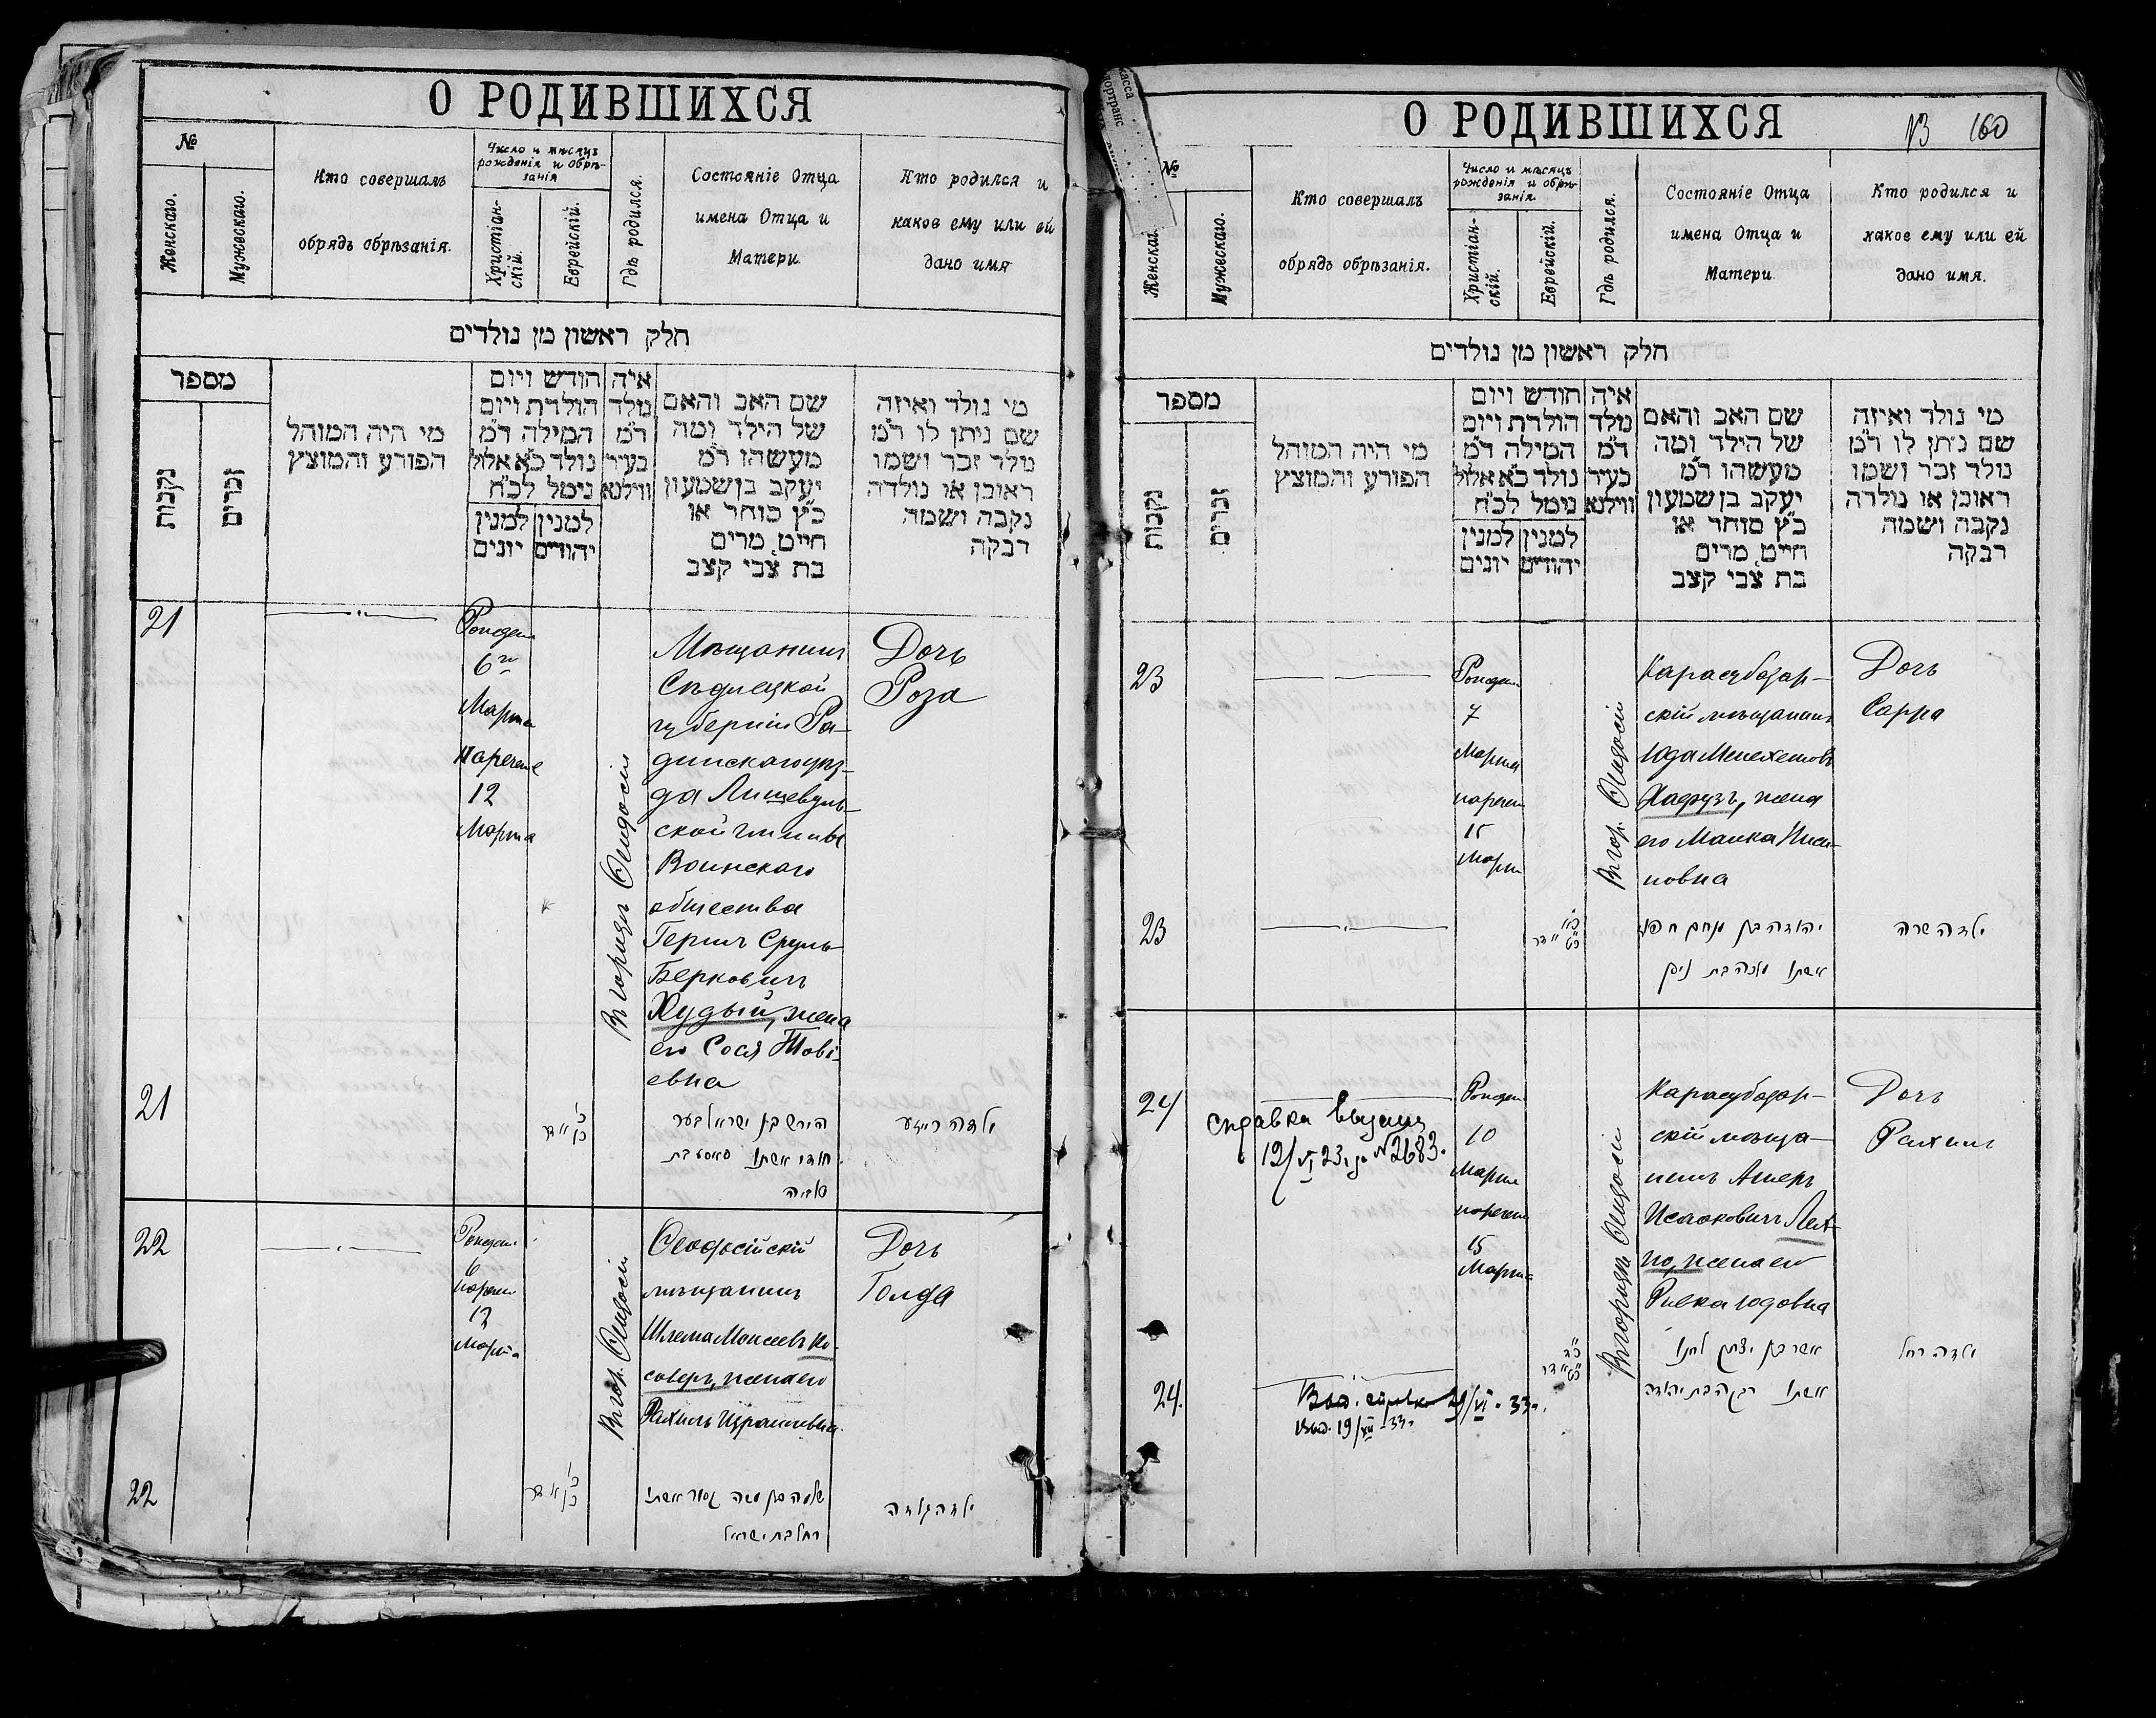 О РОДИВШИХСЯ
№
Женскаго.
Мужескаго.
Кто совершалъ
обрядъ обрѣзанія.
Число и мѣсяцъ
рожденія и обрѣ-
занія
Христіан-
скій.
Еврейскій.
Гдѣ родился.
Состояніе Отца
имена Отца и
Матери.
Кто родился и
какое ему или ей
дано имя
חלק ראשון מן נולדים
מספר
נקבות
זכרים
מי היה המוהל
הפורע והמוצץ
חודש ויום
הולדת ויום
המילה ד״מ
נולד כ״א אלול
נימל לכ״ח
למנין
יהודים
למנין
יונים
איה
נולד
ד״מ
בעיר
ווילנא
שם האב והאם
של הילד ומה
מעשהו ד״מ
יעקב בן שמעון
כ״ץ סוחר או
חייט, מרים
בת צבי קצב
מי נולד ואיזה
שם ניתן לו ד״מ
נולד זכר ושמו
ראובן או נולדה
נקבה ושמה
רבקה
21
6го
Марта
12
Марта
Въ городѣ Ѳеодосіи
Мѣщанинъ
Сѣдлецкой
губерніи Ра-
динскаго уѣз-
да
ской гмины
Воинскаго
общества
Гершъ Сруль
Берковичъ
Худый, жена
его Сося Тові-
евна
Дочь
Роза
21
הירש בן ישראל בער
חודי אשתו סאסי בת
טוביה
ילדה רייזע
22
6
12
Марта
Въ гор. Ѳеодосіи
Ѳеодосійскій
мѣщанинъ
Шлема Моисеевъ Ко-
соверъ, жена его
Рахиль Израилевна
Дочь
Голда
22
שלמה בן משה
רחל בת ישראל
ילדה גולדה
О РОДИВШИХСЯ
160
№
Женскаго.
Мужескаго.
Кто совершалъ
обрядъ обрѣзанія.
Число и мѣсяцъ
рожденія и обрѣ-
занія.
Христіан-
скій.
Еврейскій.
Гдѣ родился.
Состояніе Отца
имена Отца и
Матери.
Кто родился и
какое ему или ей
дано имя.
חלק ראשון מן נולדים
מספר
נקבות
זכרים
מי היה המוהל
הפורע והמוצץ
חודש ויום
הולדת ויום
המילה ד״מ
נולד כ״א אלול
נימל לכ״ח
למנין
יהודים
למנין
יונים
איה
נולד
ד״מ
בעיר
ווילנא
שם האב והאם
של הילד ומה
מעשהו ד״מ
יעקב בן שמעון
כ״ץ סוחר או
חייט, מרים
בת צבי קצב
מי נולד ואיזה
שם ניתן לו ד״מ
נולד זכר ושמו
ראובן או נולדה
נקבה ושמה
רבקה
23
7
Марта
15
Марта
Въ гор. Ѳеодосіи
Карасубазар-
скій мѣщанинъ
Юда Менехемовъ
Хафузъ, жена
его Малка Ниси-
новна
Дочь
Сарра
23
יהודה בן מנחם חפוז
אשתו מלכה בת ניסן
ילדה שרה
24
справка выдана
12/VI 23 г. № 2683.
10
Марта
15
Марта
Въ городѣ Ѳеодосіи
Карасубазар-
скій мѣща-
нинъ Ашеръ
Исааковичъ Лех-
но, жена его
Ривка Юдовна
Дочь
Рахиль
24.
Выд. справка 29/VI - 33 г.
Выд. 19/XII - 33 г.
אשר בן יצחק לחנו
אשתו רבקה בת יהודה
ילדה רחל